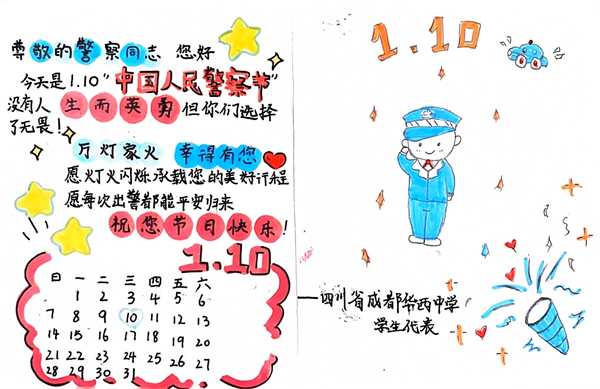 尊敬的警察同志 您好
今天是1.10“中国人民警察节”
没有人生而英勇但你们选择
了无畏!
万灯家火 幸得有您
愿灯火闪烁承载您的美好征程
愿每次出警都能平安归来
祝您节日快乐!
1.10
日 一 二 三 四 五 六
1 2 3 4 5 6
7 8 9 10 11 12 13
14 15 16 17 18 19 20
21 22 23 24 25 26 27
28 29 30 31
1.10
——四川省成都华西中学
学生代表